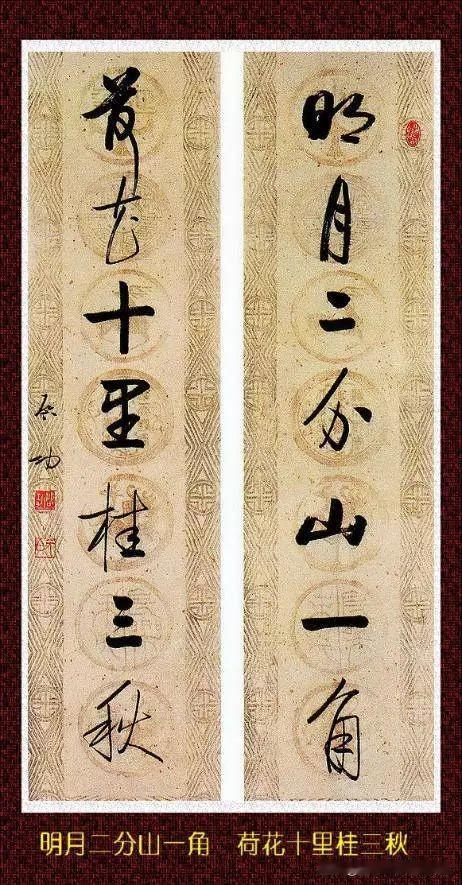 明月二分山一角
荷花十里桂三秋
启功
明月二分山一角 荷花十里桂三秋